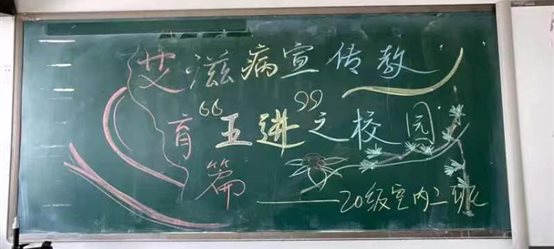 艾滋病宣传教
育“五进”之校园
篇
——20级室内二班